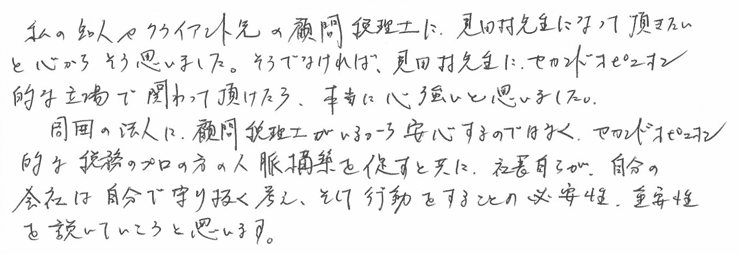 私の知人やクライアント先の顧問税理士に、見田村先生になって頂きたい
と心からそう思いました。そうでなければ、見田村先生に、セカンドオピニオン
的な立場で関わって頂けたら、本当に心強いと思いました。
周囲の法人に、顧問税理士がいるから安心するのではなく、セカンドオピニオン
的な税務のプロの方の人脈構築を促すと共に、社長自らが、自分の
会社は自分で守り抜く考え、そして行動をすることの必要性、重要性
を説いていこうと思います。